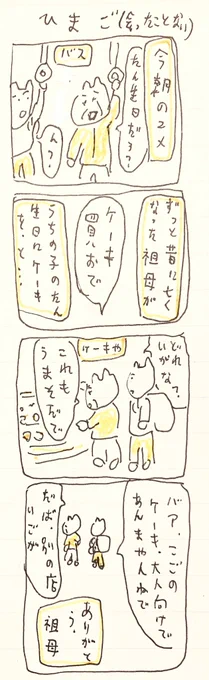 ひまご(会ったことない)
今朝のユメ
バス
たん生日だろ?
んっ?
ずっと昔に亡く
なった祖母が
ケーキ
買ハおで
うちの子のたん
生日にケーキ
を・と・・・
どれ
いがな?
ケーキや
これも
うまそだで
バア、ここの
ケーキ、大人向けで
あんまやんねで
だば別の店
いごが
ありがと
う、
祖母